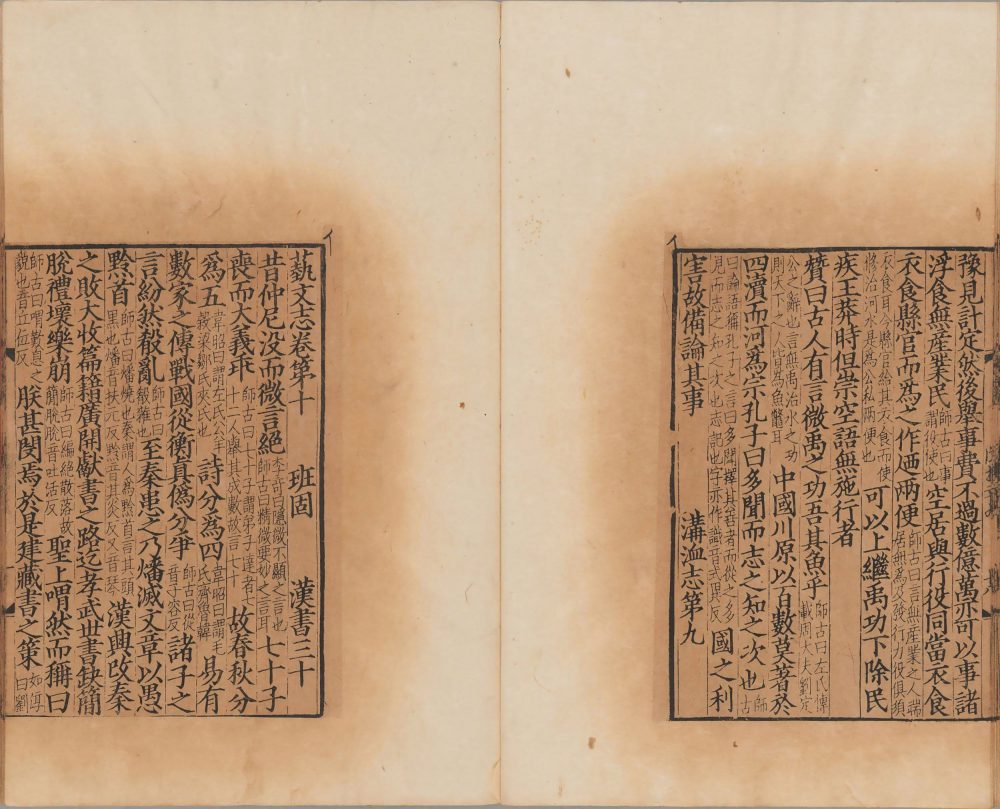 豫見計定然後舉事費不過數億萬亦可以事諸
浮食無産業民師古曰事謂役使也空居與行役同當衣食
衣食縣官而爲之作迺兩便師古曰言無産業之人端居無爲及發行力役俱須
衣食耳今縣官給其衣食而使修治河水是爲公私兩便也可以上繼禹功下除民
疾王莽時但崇空語無施行者
贊曰古人有言微禹之功吾其魚乎師古曰左氏傳載周大夫劉定
公之辭也言無禹治水之功則天下之人皆爲魚鼈耳中國川原以百數莫著於
四瀆而河爲宗孔子曰多聞而志之知之次也師古
曰論語稱孔子之言曰多聞擇其善者而從之多見而志之知之次也志記也字亦作識音式異反國之利
害故備論其事 溝洫志第九
藝文志卷第十 班固 漢書三十
昔仲尼没而微言絶李奇曰隱微不顯之言也師古曰精微要妙之言耳七十子
喪而大義乖師古曰七十子謂弟子達者七十二人舉其成數故言七十故春秋分
爲五韋昭曰謂左氏公羊穀梁鄒氏夾氏也詩分爲四韋昭曰謂毛氏齊魯韓易有
數家之傳戰國從衡真僞分爭師古曰從音子容反諸子之
言紛然殽亂師古曰殽雜也至秦患之乃燔滅文章以愚
黔首師古曰燔燒也秦謂人爲黔首言其頭黑也燔音扶元反黔音其炎反又音琴漢興改秦
之敗大收篇籍廣開獻書之路迄孝武世書缺簡
脫禮壞樂崩師古曰編絶散落故簡脫脫音吐活反聖上喟然而稱曰
師古曰喟歎息之貌也音丘位反朕甚閔焉於是建藏書之策如淳曰劉